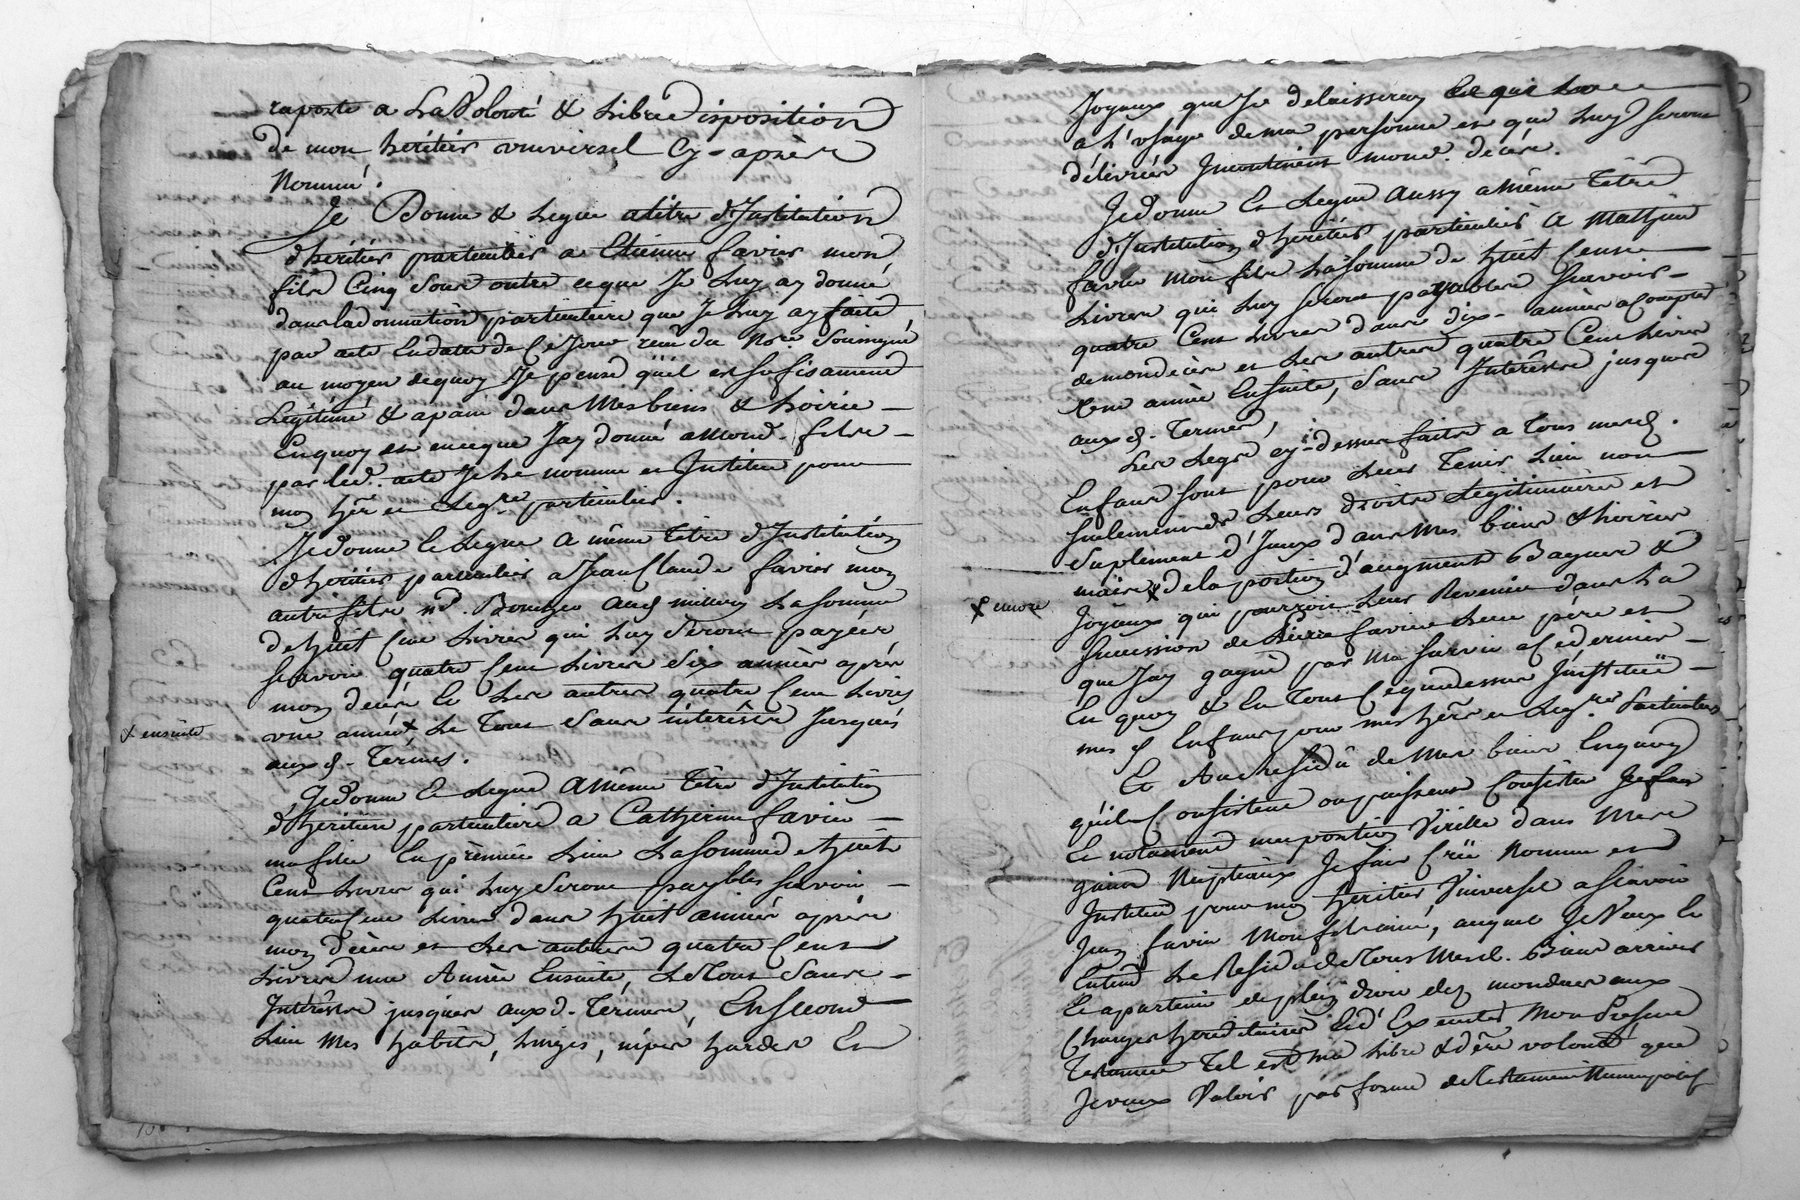 raporte a La Volonté & Libre disposition
de mon héritier vniversel Cy-aprèz
Nommé.
Je Donne & Legue atitre d'Institution
d'héritier particulier a Etienne favier mon
fils Cinq Sous outre ceque Je Luy ay donné
dans la donnation particuliere que Je Luy ay faitte
par acte En datte de Ce Jour reçu du Nore. Soussigné
au moyen dequoy Je pense qu'il est sufisament
Legitimé & apané dans Mes biens & hoirie
Enquoy et en ceque J'ay donné a mond. fils
par led. acte Je Le nomme et Institue pour
mon hér. et Legre. particulier.
Je donne & Legue a même Titre d'Institution
d'héritier particulier a Jean Claude favier mon
autre fils La Somme
de huit Cent Livres qui Luy Seront payées
Scavoir quatre Cent Livres dix années aprés
mon decés Et Les autres quatre Cent Livres
vne année x Le Tout Sans interêsts Jusqués
x ensuite
aux d. Termes.
Je donne & Legue a Même Titre d'Institution
d'héritiere particuliere a Catherine favier
ma fille En prémier Lieu La Somme d'huit
Cent Livres qui Luy Seront paybles Scavoir
quatre Cent Livres dans huit années aprés
mon décès et Les autres quatre Cent
Livres une Année Ensuite, Le Tout Sans
Intérêsts jusques aux d. Termes, En Second
Lieu Mes habits, Linges, nipes hardes Et
Joyaux que Je delaisseray
a L'vsage de ma personne et qui Luy Seront
délivrées Incontinent mond. décès.
Je donne Et Legue aussy a Même Titre
d'Institution d'héritier particulier a Mathieu
favier Mon fils La Somme de huit Cent
Livres qui Luy Seront payables Scavoir
quatre Cent Livres dans dix années a Compter
de mon décès et Les autres quatre Cent Livres
vne année Ensuite, Sans Intérêsts jusques
aux d. Termes,
Les Legs cy-dessus faits a Tous mesd.
Enfans sont pour Leur Tenir Lieu non
Seulement de Leurs droits Legitimaires et
Suplement d'Iceux dans Mes biens & hoirie
mais x de la portion d'augment Bagues &
x encore
Joyaux qui pourroit Leur Revenir dans La
Succession de Pierre favier Leur pére et
que J'ay gagné par Ma Survie a Ce dernier
En quoy & En Tout Ce que dessus Institué
mes d. Enfans pour mes hérs. et Legres. Particuliers
Et Au Résidu de Mes biens Enquoy
qu'ils Consistent ou puissent Consister
Et notament ma portion Virille dans Mes
gains Nuptiaux Je fais Crée Nomme et
Institue pour mon héritier Vniversel a Scavoir
Jean favier Mon fils ainé, auquel Je Veux &
Entend Le Résidu de Tous Mesd. Biens arriver
Et apartenir de plein droit dez mon decès aux
Charges héréditaires Et d'Exécuter Mon Présent
Testament Tel est Ma Libre & dérre. volonté que
Je veux Valoir par forme de Testament Nuncupatif